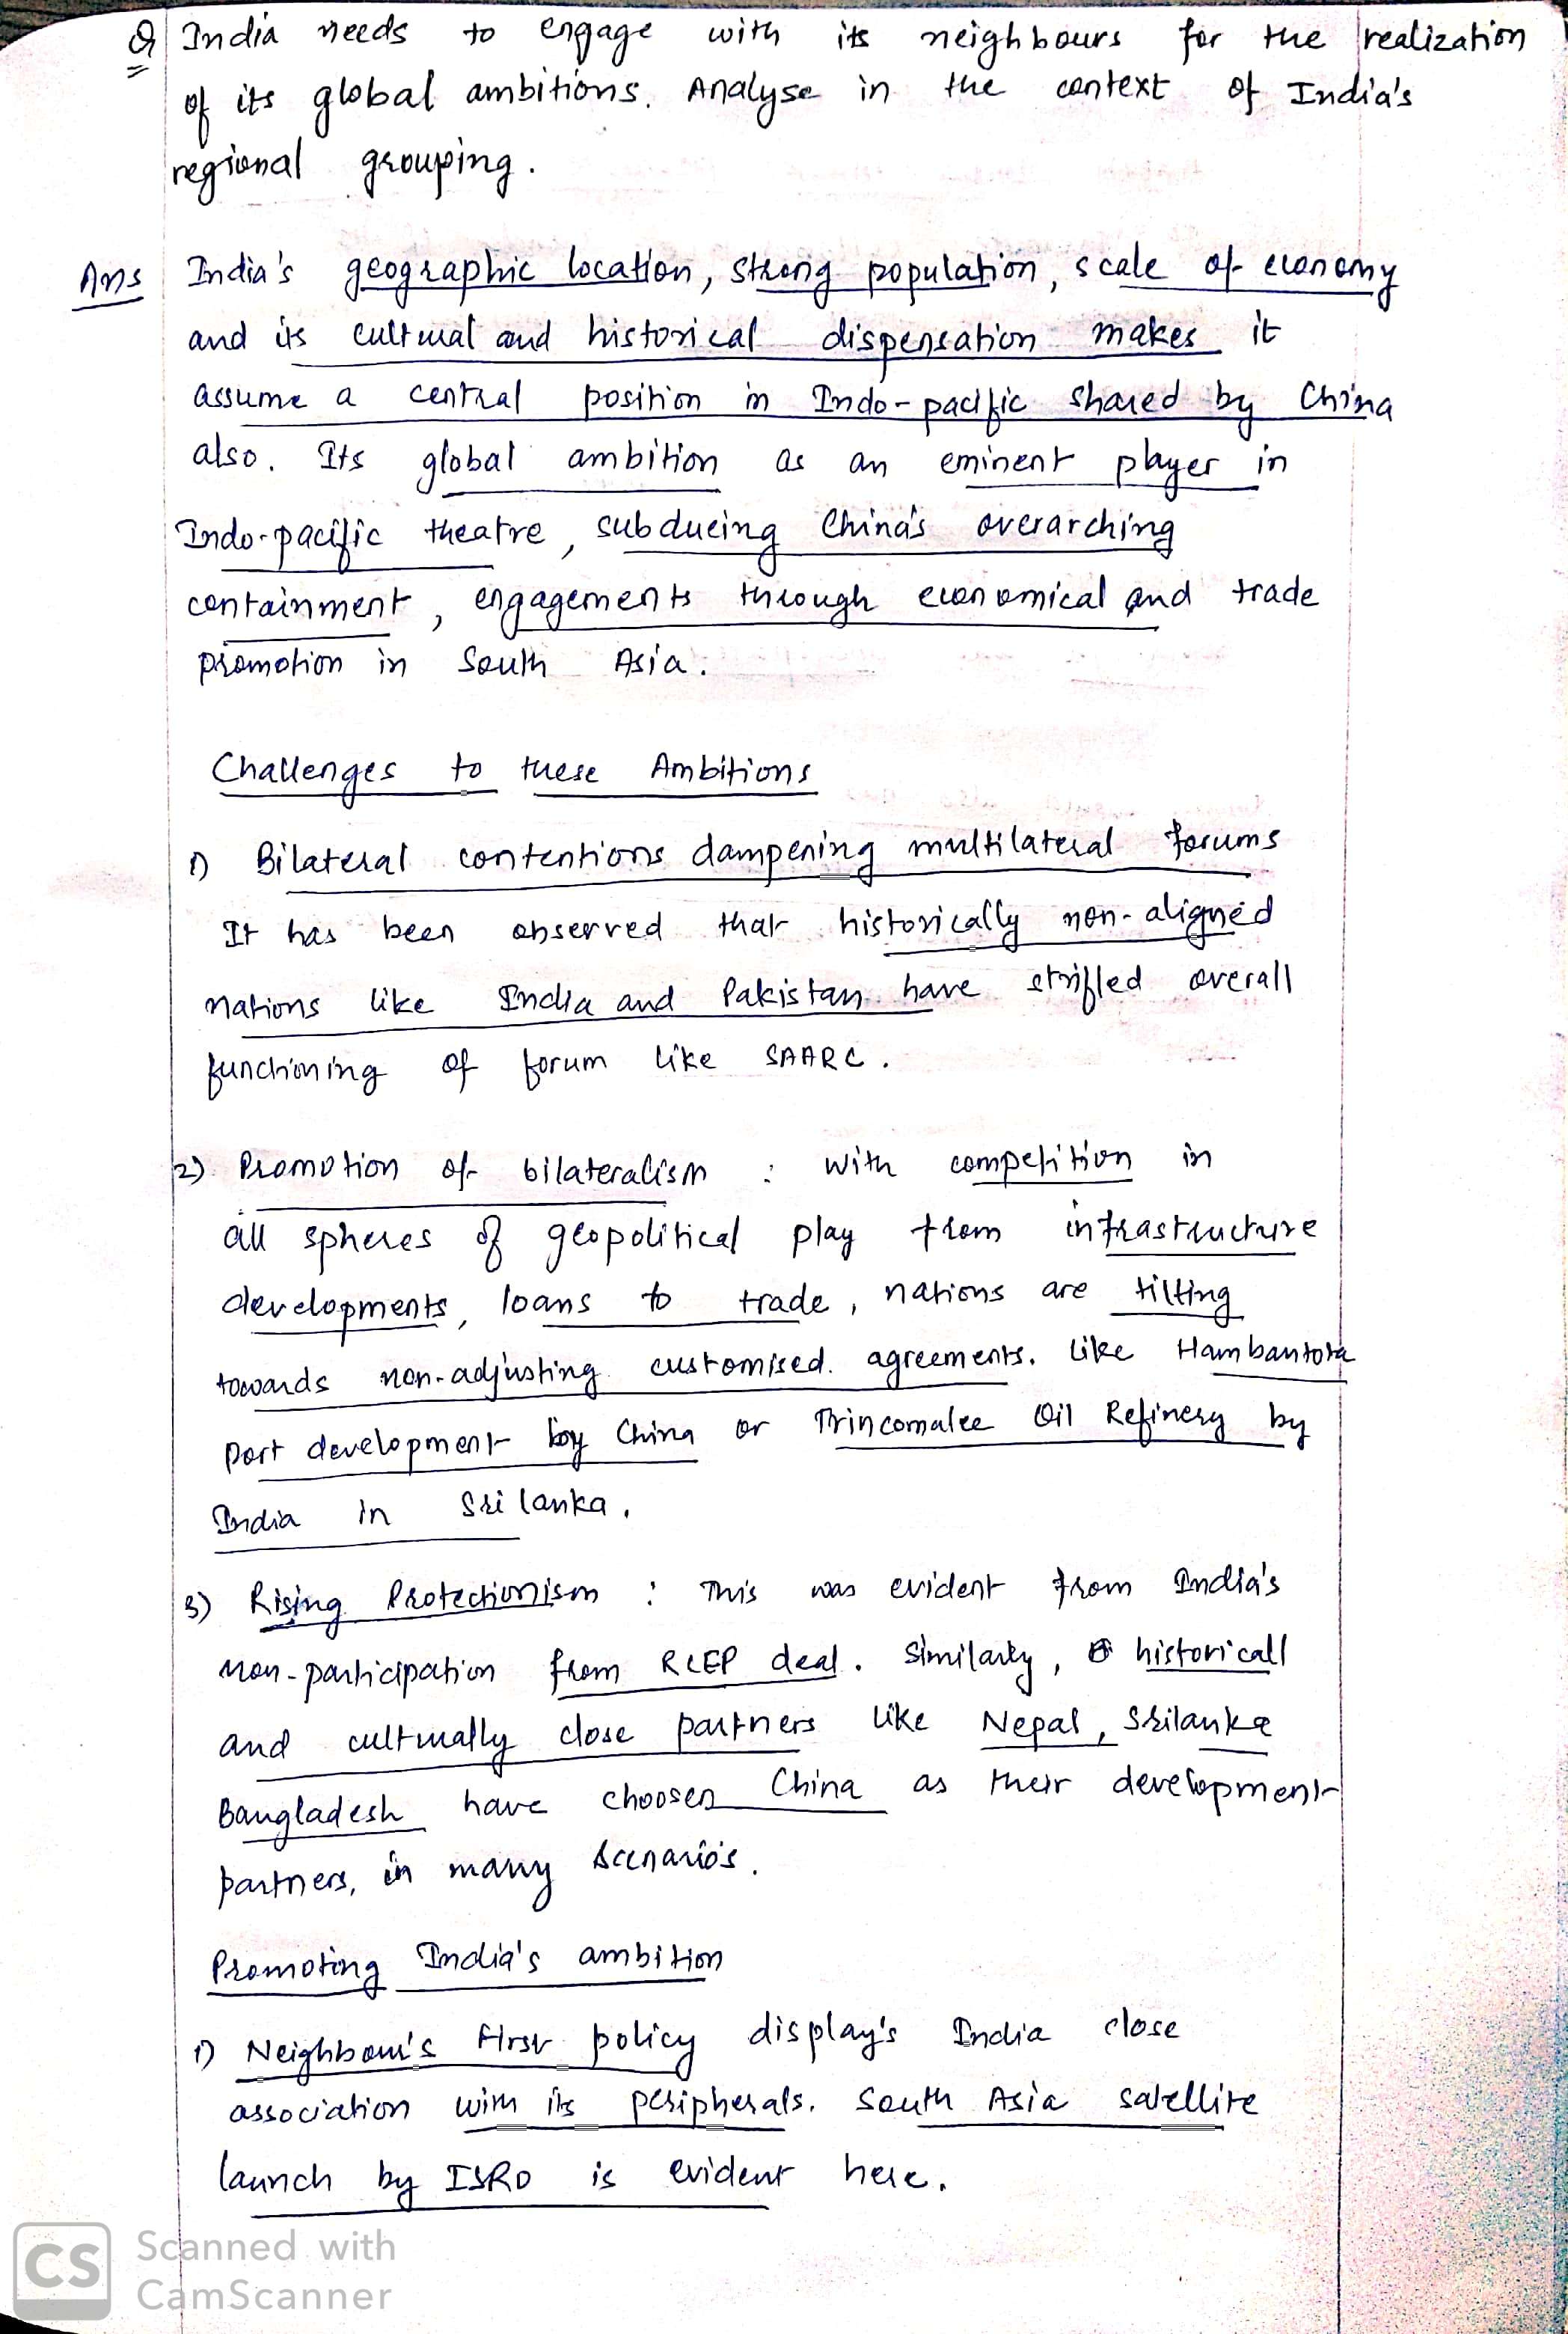 Q India needs to engage with its neighbours for the realization
of its global ambitions. Analyse in the context of India's
regional grouping.
Ans India's geographic location, strong population, scale of economy
and its cultural and historical dispensation makes it
assume a central position in Indo-pacific shared by China
also. Its global ambition as an eminent player in
Indo-pacific theatre, subdueing China's overarching
containment, engagements through economical and trade
promotion in South Asia.
Challenges to these Ambitions
1) Bilateral contentions dampening multilateral forums
It has been observed that historically non-aligned
nations like India and Pakistan have strifled overall
functioning of forum like SAARC.
2) Promotion of bilateralism : With competition in
all spheres of geopolitical play from infrastructure
developments, loans to trade, nations are tilting
towards non-adjusting customised agreements. Like Hambantota
Port development by China or Trincomalee Oil Refinery by
India in Sri lanka.
3) Rising Protectionism : This was evident from India's
non-participation from RCEP deal. Similarly, historicall
and culturally close partners like Nepal, Srilanka
Bangladesh have choosen China as their development
partners, in many scenario's.
Promoting India's ambition
1) Neighbour's First policy display's India close
association with its peripherals. South Asia satellite
launch by ISRO is evident here.
CS Scanned with
CamScanner